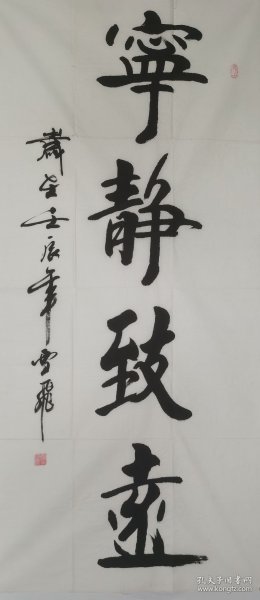 寧靜致遠
壬辰年雪飛
孔夫子旧书网
www.kongfz.com